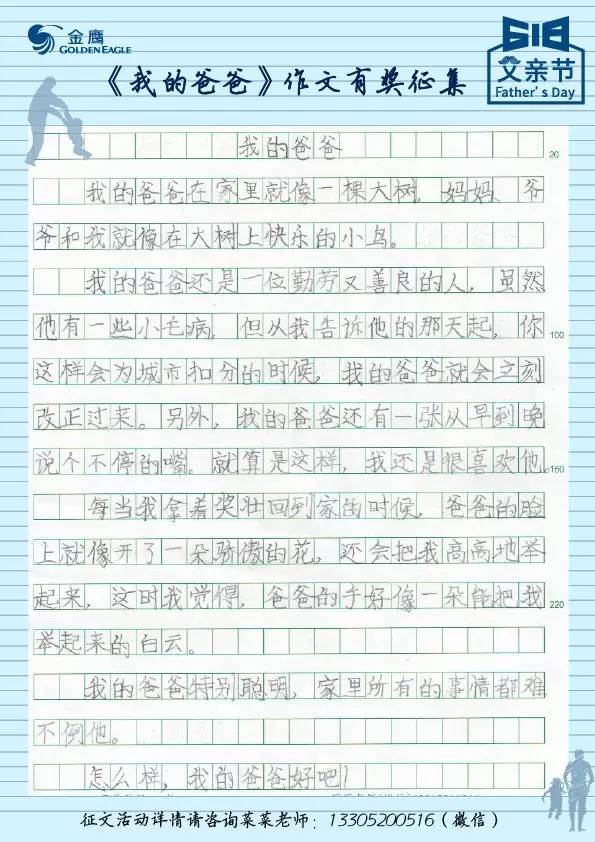 金鹰
GOLDEN EAGLE
618
父亲节
Father's Day
《我的爸爸》作文有奖征集
我的爸爸
20
我的爸爸在家里就像一棵大树，妈妈、爷
爷和我就像在大树上快乐的小鸟。
我的爸爸还是一位勤劳又善良的人，虽然
他有一些小毛病，但从我告诉他的那天起，你
100
这样会为城市扣分的时候，我的爸爸就会立刻
改正过来。另外，我的爸爸还有一张从早到晚
说个不停的嘴。就算是这样，我还是很喜欢他。
160
每当我拿着奖壮回到家的时候，爸爸的脸
上就像开了一朵骄傲的花，还会把我高高地举
起来，这时我觉得，爸爸的手好像一朵能把我
220
举起来的白云。
我的爸爸特别聪明，家里所有的事情都难
不倒他。
怎么样，我的爸爸好吧！
征文活动详情请咨询菜菜老师：13305200516（微信）